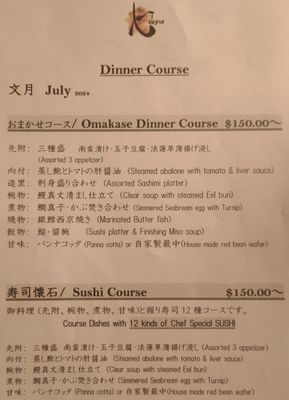 Dinner Course
文月 July 2024
おまかせコース/ Omakase Dinner Course $150.00~
先附: 三種盛 南蛮漬け・玉子豆腐・法蓮草薄揚げ浸し
(Assorted 3 appetizer)
向付: 蒸し鮑とトマトの肝醤油 (Steamed abalone with tomato & liver sauce)
造里: 刺身盛り合わせ (Assorted Sashimi platter)
椀物: 鰻真丈清まし仕立て (Clear soup with steamed Eel bun)
煮物: 鯛真子・かぶ焚き合わせ (Simmered Seabream egg with Turnip)
燒物: 銀鱈西京焼き (Marinated Butter fish)
飯物: 鮨・留椀 (Sushi platter & Finishing Miso soup)
甘味: パンナコッタ (Panna cotta) or 自家製最中(House made red bean wafer)
寿司懐石/ Sushi Course $150.00~
御料理 (先附、椀物、煮物、甘味)と握り寿司 12 種コースです。
Course Dishes with 12 kinds of Chef Special SUSHI
先附: 三種盛 南蛮漬け・玉子豆腐・法蓮草薄揚げ浸し (Assorted 3 appetizer)
向付: 蒸し鮑とトマトの肝醤油 (Steamed abalone with tomato & liver sauce)
椀物: 鰻真丈清まし仕立て (Clear soup with steamed Eel bun)
煮物: 鯛真子・かぶ焚き合わせ(Simmered Seabream egg with Turnip)
甘味: パンナコッタ (Panna cotta) or 自家製最中(House made red bean wafer)